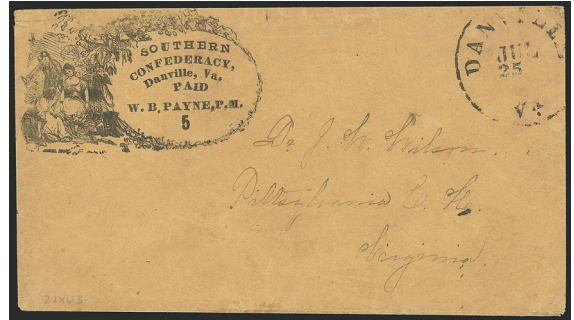 SOUTHERN
CONFEDERACY,
Danville, Va.
PAID
W. B. PAYNE, P.M.
5
DANVILLE
JUL
25
VA
Dr. J. W. Wilson.
Pittsylvania C. H.
Virginia.
21XU3